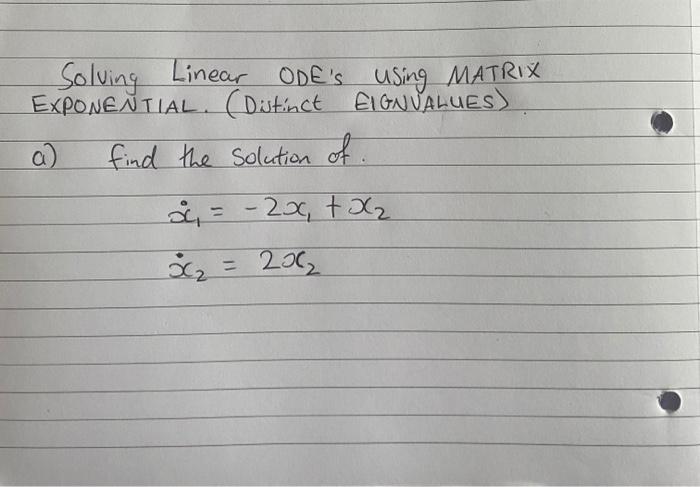 Solving Linear ODE's using MATRIX
EXPONENTIAL. (Distinct EIGNVALUES)
a) find the solution of.
ẋ₁ = -2x₁ + x₂
ẋ₂ = 2x₂